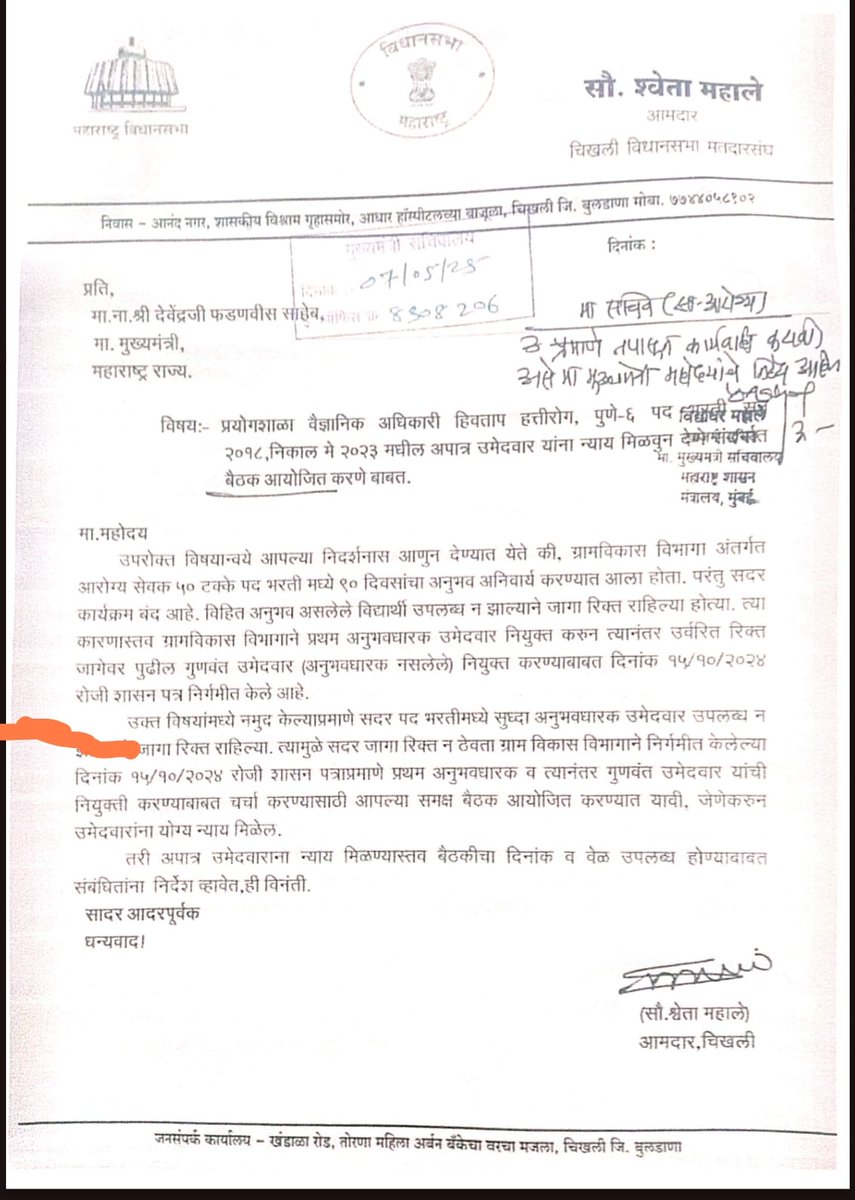 महाराष्ट्र विधानसभा
विधानसभा
महाराष्ट्र
सौ. श्वेता महाले
आमदार
चिखली विधानसभा मतदारसंघ
निवास – आनंद नगर, शासकीय विश्राम गृहासमोर, आधार हॉस्पीटलच्या बाजूला, चिखली जि. बुलडाणा मोबा. ७७४४०५८१०२
मुख्यमंत्री सचिवालय
दिनांक 07/05/25
8308206
दिनांक :
प्रति,
मा.ना.श्री देवेंद्रजी फडणवीस साहेब,
मा. मुख्यमंत्री,
महाराष्ट्र राज्य.
मा सचिव (सा-आरोग्य)
प्रमाणे तपासून कार्यवाही करावी
असे मा मुख्यमंत्री महोदयांचे
विषय:- प्रयोगशाळा वैज्ञानिक अधिकारी हिवताप हत्तीरोग, पुणे-६ पद
२०१८,निकाल मे २०२३ मधील अपात्र उमेदवार यांना न्याय मिळवून देण्या
बैठक आयोजित करणे बाबत.
मा. मुख्यमंत्री सचिवालय
महाराष्ट्र शासन
मंत्रालय, मुंबई
मा.महोदय
उपरोक्त विषयान्वये आपल्या निदर्शनास आणुन देण्यात येते की, ग्रामविकास विभागा अंतर्गत
आरोग्य सेवक ५० टक्के पद भरती मध्ये ९० दिवसांचा अनुभव अनिवार्य करण्यात आला होता. परंतु सदर
कार्यक्रम बंद आहे. विहित अनुभव असलेले विद्यार्थी उपलब्ध न झाल्याने जागा रिक्त राहिल्या होत्या. त्या
कारणास्तव ग्रामविकास विभागाने प्रथम अनुभवधारक उमेदवार नियुक्त करुन त्यानंतर उर्वरित रिक्त
जागेवर पुढील गुणवंत उमेदवार (अनुभवधारक नसलेले) नियुक्त करण्याबाबत दिनांक १५/१०/२०२४
रोजी शासन पत्र निर्गमीत केले आहे.
उक्त विषयांमध्ये नमुद केल्याप्रमाणे सदर पद भरतीमध्ये सुध्दा अनुभवधारक उमेदवार उपलब्ध न
जागा रिक्त राहिल्या. त्यामुळे सदर जागा रिक्त न ठेवता ग्राम विकास विभागाने निर्गमीत केलेल्या
दिनांक १५/१०/२०२४ रोजी शासन पत्राप्रमाणे प्रथम अनुभवधारक व त्यानंतर गुणवंत उमेदवार यांची
नियुक्ती करण्याबाबत चर्चा करण्यासाठी आपल्या समक्ष बैठक आयोजित करण्यात यावी, जेणेकरुन
उमेदवारांना योग्य न्याय मिळेल.
तरी अपात्र उमेदवाराना न्याय मिळण्यास्तव बैठकीचा दिनांक व वेळ उपलब्ध होण्याबाबत
संबंधितांना निर्देश व्हावेत,ही विनंती.
सादर आदरपूर्वक
धन्यवाद!
(सौ.श्वेता महाले)
आमदार,चिखली
जनसंपर्क कार्यालय – खंडाळा रोड, तोरणा महिला अर्बन बँकेचा वरचा मजला, चिखली जि. बुलडाणा